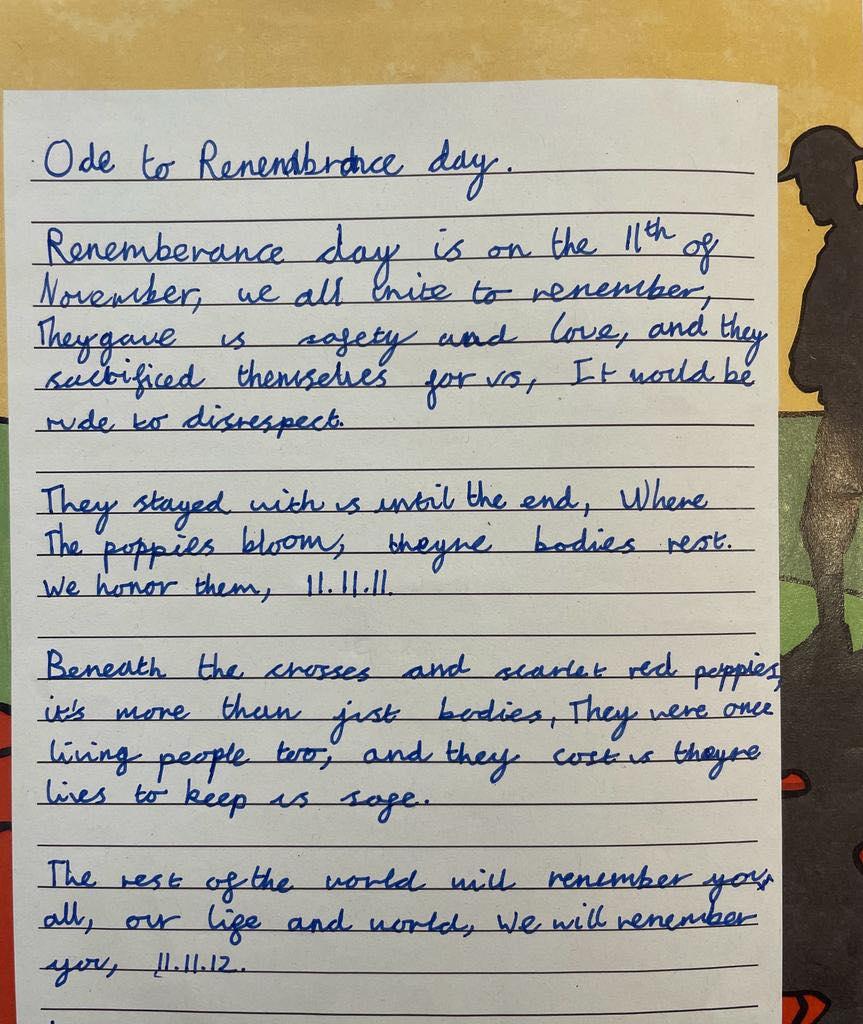 Ode to Remembrance day.
Rememberance day is on the 11th of
November, we all unite to remember,
They gave us safety and love, and they
sacrificed themselves for us, It would be
rude to disrespect.
They stayed with us until the end, Where
The poppies bloom, theyre bodies rest.
We honor them, 11.11.11.
Beneath the crosses and scarlet red poppies,
it's more than just bodies, They were once
living people too, and they cost us theyre
lives to keep us safe.
The rest of the world will remember you
all, our life and world, We will remember
you, 11.11.12.